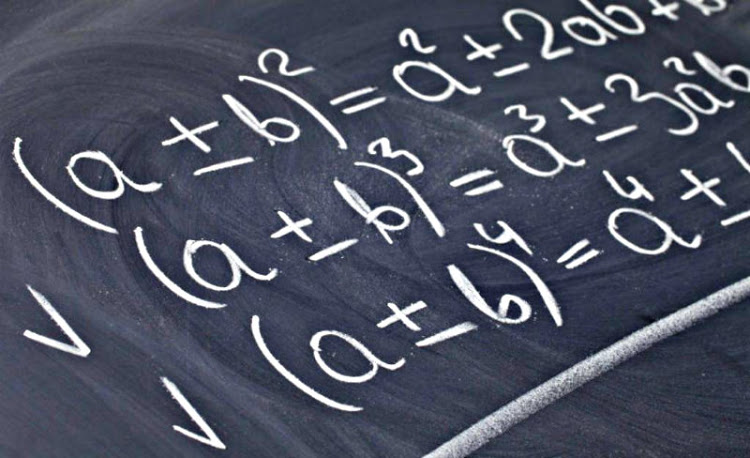 (a ± b)² = a² ± 2ab + b
(a ± b)³ = a³ ± 3a²b
V (a ± b)⁴ = a⁴ ±
V